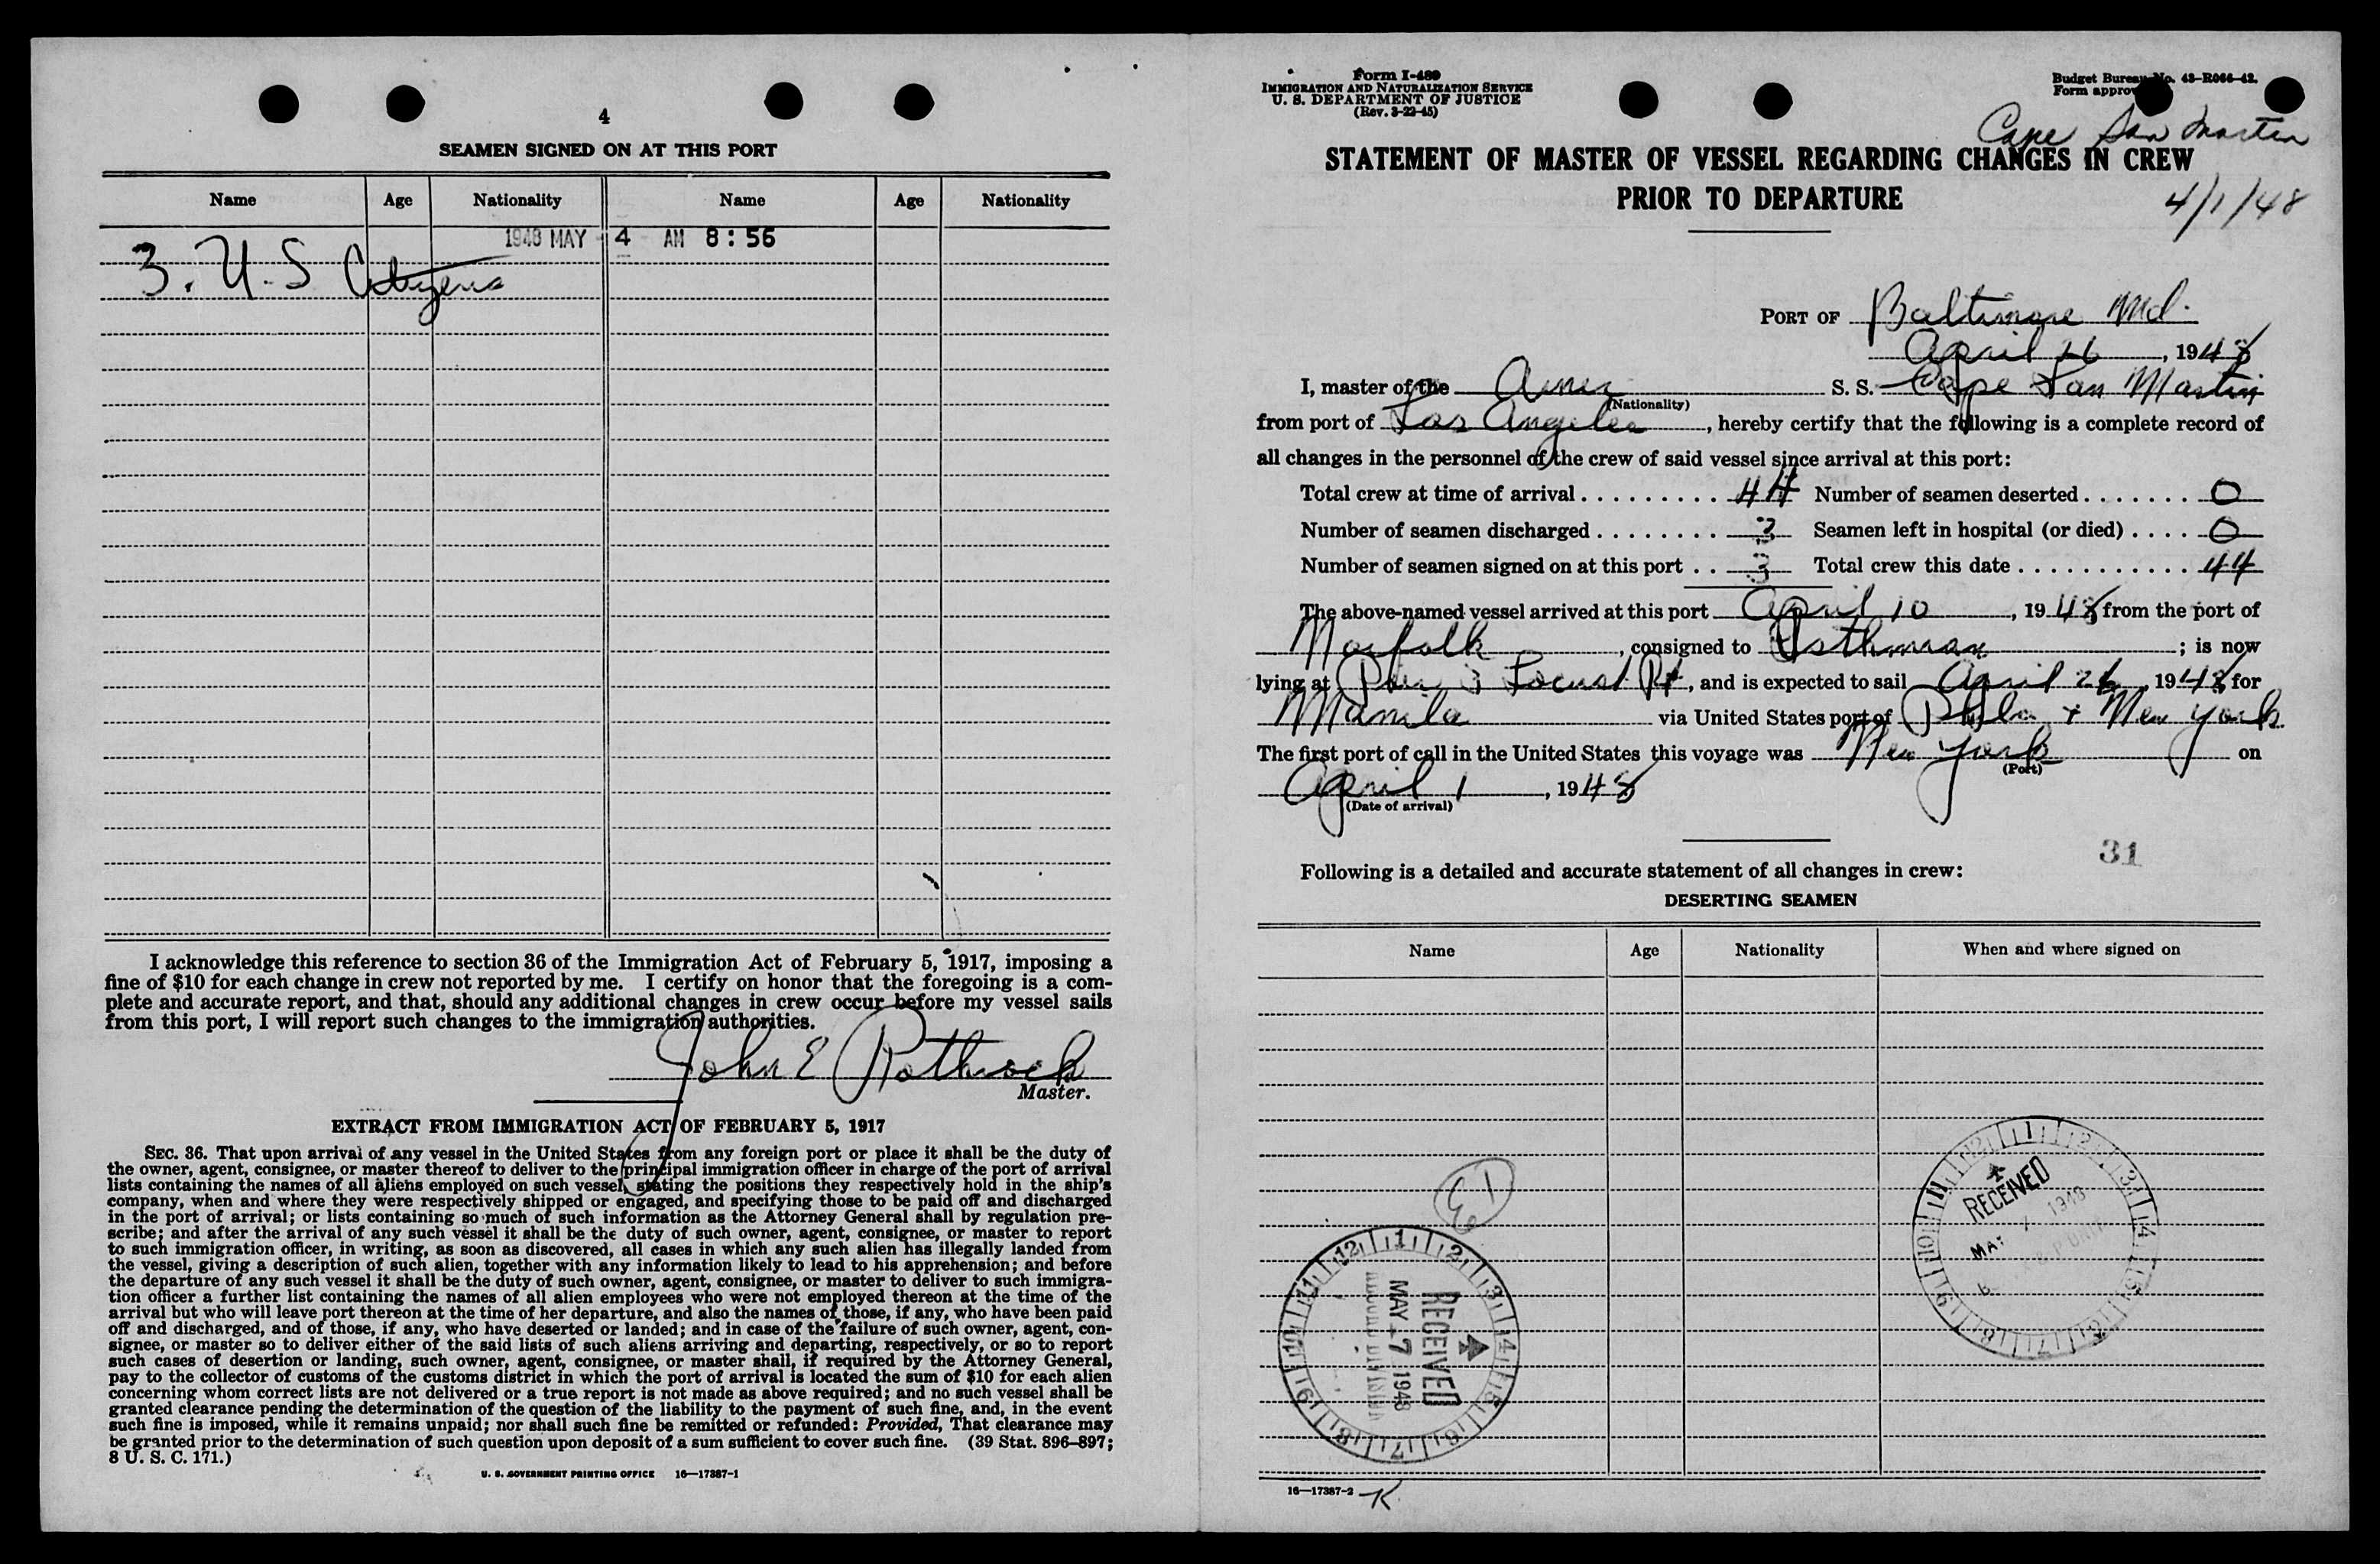 4
SEAMEN SIGNED ON AT THIS PORT
Name Age Nationality Name Age Nationality
1948 MAY - 4 AM 8:56
3. U.S Citizens
I acknowledge this reference to section 36 of the Immigration Act of February 5, 1917, imposing a
fine of $10 for each change in crew not reported by me. I certify on honor that the foregoing is a com-
plete and accurate report, and that, should any additional changes in crew occur before my vessel sails
from this port, I will report such changes to the immigration authorities.
John E Rothrock
Master.
EXTRACT FROM IMMIGRATION ACT OF FEBRUARY 5, 1917
SEC. 36. That upon arrival of any vessel in the United States from any foreign port or place it shall be the duty of
the owner, agent, consignee, or master thereof to deliver to the principal immigration officer in charge of the port of arrival
lists containing the names of all aliens employed on such vessel, stating the positions they respectively hold in the ship's
company, when and where they were respectively shipped or engaged, and specifying those to be paid off and discharged
in the port of arrival; or lists containing so much of such information as the Attorney General shall by regulation pre-
scribe; and after the arrival of any such vessel it shall be the duty of such owner, agent, consignee, or master to report
to such immigration officer, in writing, as soon as discovered, all cases in which any such alien has illegally landed from
the vessel, giving a description of such alien, together with any information likely to lead to his apprehension; and before
the departure of any such vessel it shall be the duty of such owner, agent, consignee, or master to deliver to such immigra-
tion officer a further list containing the names of all alien employees who were not employed thereon at the time of the
arrival but who will leave port thereon at the time of her departure, and also the names of those, if any, who have been paid
off and discharged, and of those, if any, who have deserted or landed; and in case of the failure of such owner, agent, con-
signee, or master so to deliver either of the said lists of such aliens arriving and departing, respectively, or so to report
such cases of desertion or landing, such owner, agent, consignee, or master shall, if required by the Attorney General,
pay to the collector of customs of the customs district in which the port of arrival is located the sum of $10 for each alien
concerning whom correct lists are not delivered or a true report is not made as above required; and no such vessel shall be
granted clearance pending the determination of the question of the liability to the payment of such fine, and, in the event
such fine is imposed, while it remains unpaid; nor shall such fine be remitted or refunded: Provided, That clearance may
be granted prior to the determination of such question upon deposit of a sum sufficient to cover such fine. (39 Stat. 896–897;
8 U. S. C. 171.)
U. S. GOVERNMENT PRINTING OFFICE 16—17387-1
Form I-489
IMMIGRATION AND NATURALIZATION SERVICE
U. S. DEPARTMENT OF JUSTICE
(Rev. 3-22-45)
Budget Bureau No. 43-R066-42.
Form approv
Cape San Martin
STATEMENT OF MASTER OF VESSEL REGARDING CHANGES IN CREW
PRIOR TO DEPARTURE
4/1/48
PORT OF Baltimore Md.
April 26, 1948
I, master of the Amer S. S. Cape San Martin
(Nationality)
from port of Los Angeles, hereby certify that the following is a complete record of
all changes in the personnel of the crew of said vessel since arrival at this port:
Total crew at time of arrival . . . . . . . . . 44 Number of seamen deserted . . . . . . . 0
Number of seamen discharged . . . . . . . . 3 Seamen left in hospital (or died) . . . . 0
Number of seamen signed on at this port . . 3 Total crew this date . . . . . . . . . . . 44
The above-named vessel arrived at this port April 10, 1948 from the port of
Norfolk, consigned to Isthmian; is now
lying at Pier 3 Locust Pt, and is expected to sail April 26, 1948 for
Manila via United States port of Phila + New York
The first port of call in the United States this voyage was New York on
(Port)
April 1, 1948
(Date of arrival)
31
Following is a detailed and accurate statement of all changes in crew:
DESERTING SEAMEN
Name Age Nationality When and where signed on
RECEIVED
MAY 7 1948
RECEIVED
MAY 7 1948
16—17387-2 K